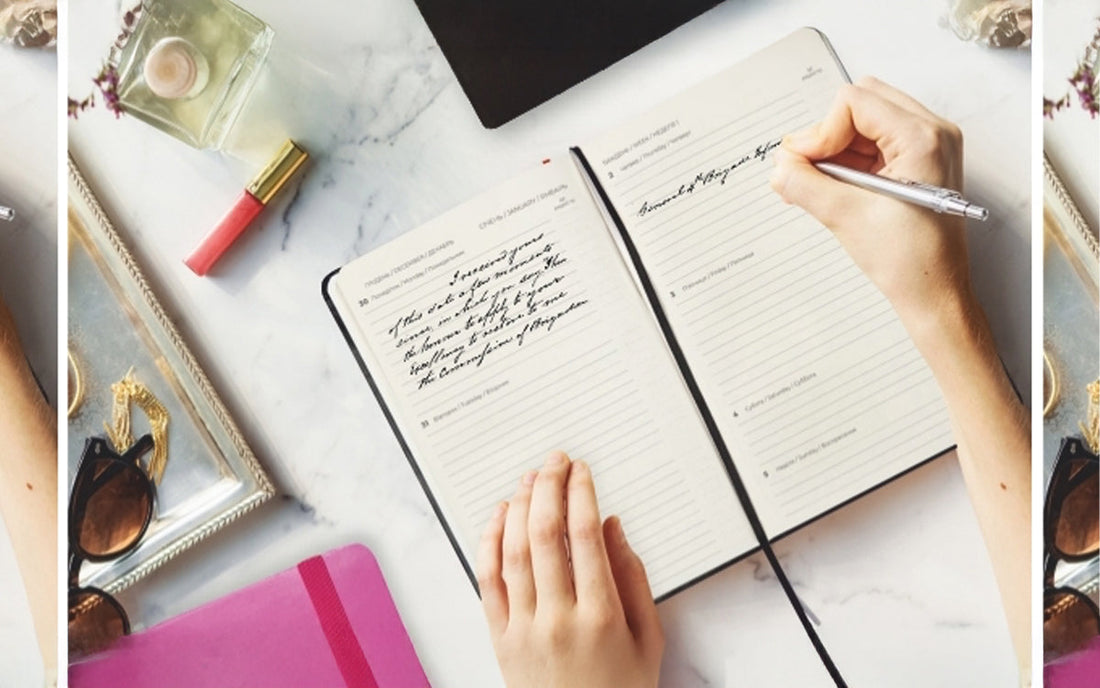 ГРУДЕНЬ / DECEMBER / ДЕКАБРЬ
СІЧЕНЬ / JANUARY / ЯНВАРЬ
30 Понеділок / Monday / Понедельник
I received yours
of this date a few moments
since, in which you say
the honour to apply to your
Excellency to restore to me
the Commission of Brigadier
31 Вівторок / Tuesday / Вторник
ТИЖДЕНЬ / WEEK / НЕДЕЛЯ 1
2 Четвер / Thursday / Четверг
General Brigade
3 П'ятниця / Friday / Пятница
4 Субота / Saturday / Суббота
5 Неділя / Sunday / Воскресение